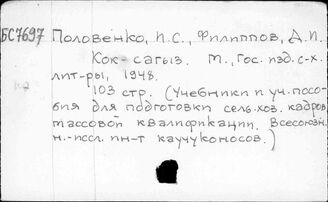 БС7697 Половенко, И.С., Филиппов, Д.И.
Кок-сагыз. М., Гос. изд. с-х.
лит-ры, 1948.
103 стр. (Учебники и уч. посо-
бия для подготовки сель.хоз. кадров
массовой квалификации. Всесоюзн.
н.-иссл. ин-т каучуконосов.)